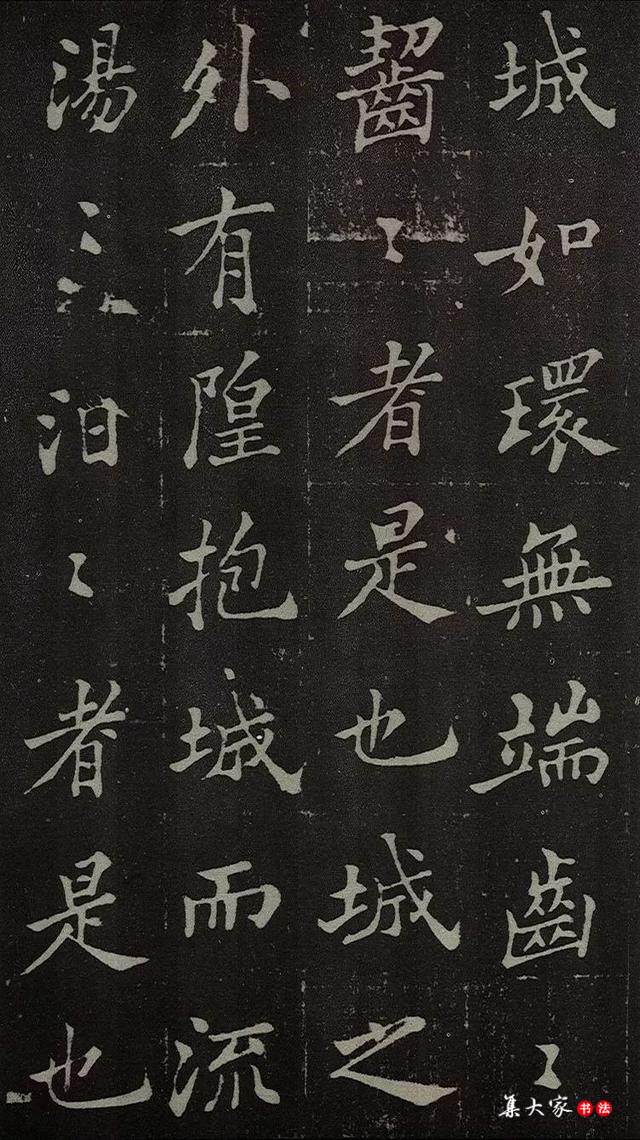 城如環無端齒〻
齧〻者是也城之
外有隍抱城而流
湯〻汩〻者是也
集大家书法